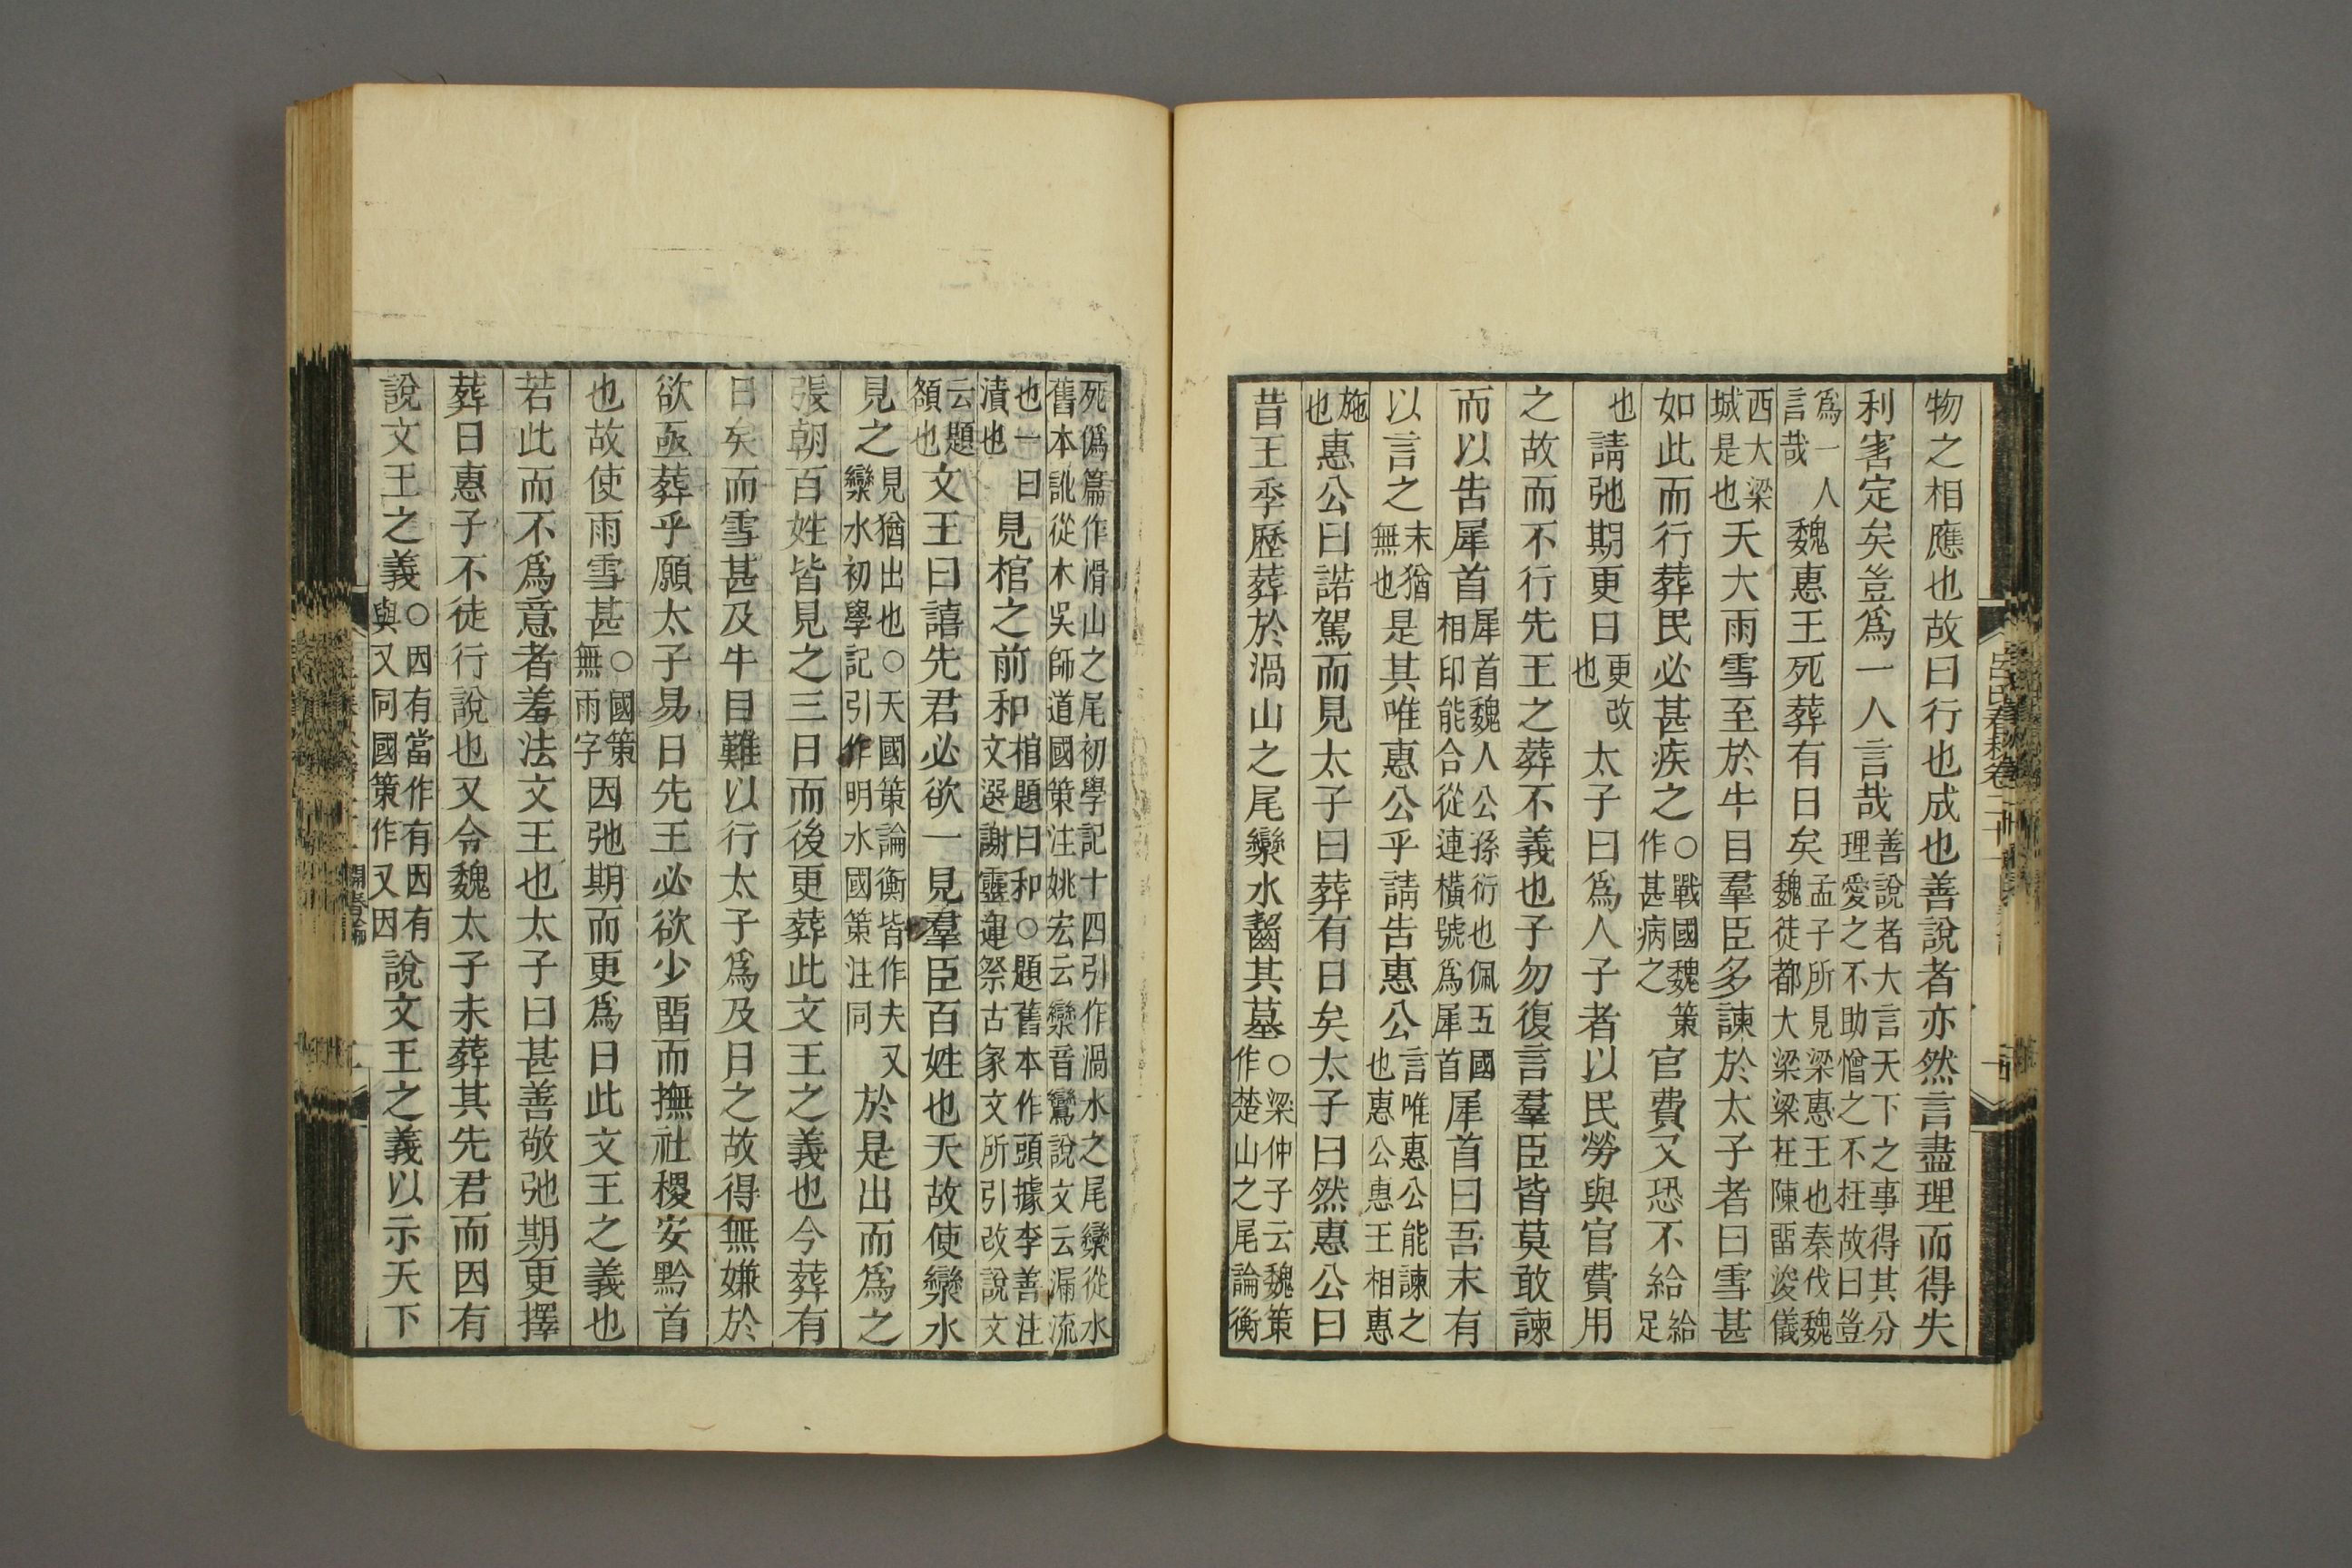 物之相應也故曰行也成也善說者亦然言盡理而得失
利害定矣豈爲一人言哉善說者大言天下之事得其分理愛之不助憎之不枉故曰豈
爲一人言哉魏惠王死葬有日矣孟子所見梁惠王也秦伐魏魏徙都大梁梁在陳畱浚儀
西大梁城是也天大雨雪至於牛目羣臣多諫於太子者曰雪甚
如此而行葬民必甚疾之○戰國魏策作甚病之官費又恐不給給足
也請弛期更日更改也太子曰爲人子者以民勞與官費用
之故而不行先王之葬不義也子勿復言羣臣皆莫敢諫
而以告犀首犀首魏人公孫衍也佩五國相印能合從連橫號爲犀首犀首曰吾末有
以言之末猶無也是其唯惠公乎請告惠公言唯惠公能諫之也惠公惠王相惠
施也惠公曰諾駕而見太子曰葬有日矣太子曰然惠公曰
昔王季歷葬於渦山之尾灓水齧其墓○梁仲子云魏策作楚山之尾論衡
死僞篇作滑山之尾初學記十四引作渦水之尾灓從水舊本訛從木吳師道國策注姚宏云灓音鸞說文云漏流
也一曰漬也見棺之前和棺題曰和○題舊本作頭據李善注文選謝靈運祭古冢文所引改說文
云題頟也文王曰譆先君必欲一見羣臣百姓也天故使灓水
見之見猶出也○天國策論衡皆作夫又灓水初學記引作明水國策注同於是出而爲之
張朝百姓皆見之三日而後更葬此文王之義也今葬有
日矣而雪甚及牛目難以行太子爲及日之故得無嫌於
欲亟葬乎願太子易日先王必欲少畱而撫社稷安黔首
也故使雨雪甚○國策無雨字因弛期而更爲日此文王之義也
若此而不爲意者羞法文王也太子曰甚善敬弛期更擇
葬日惠子不徒行說也又令魏太子未葬其先君而因有
說文王之義○因有當作有因有與又同國策作又因說文王之義以示天下
呂氏春秋卷二十一
開春論